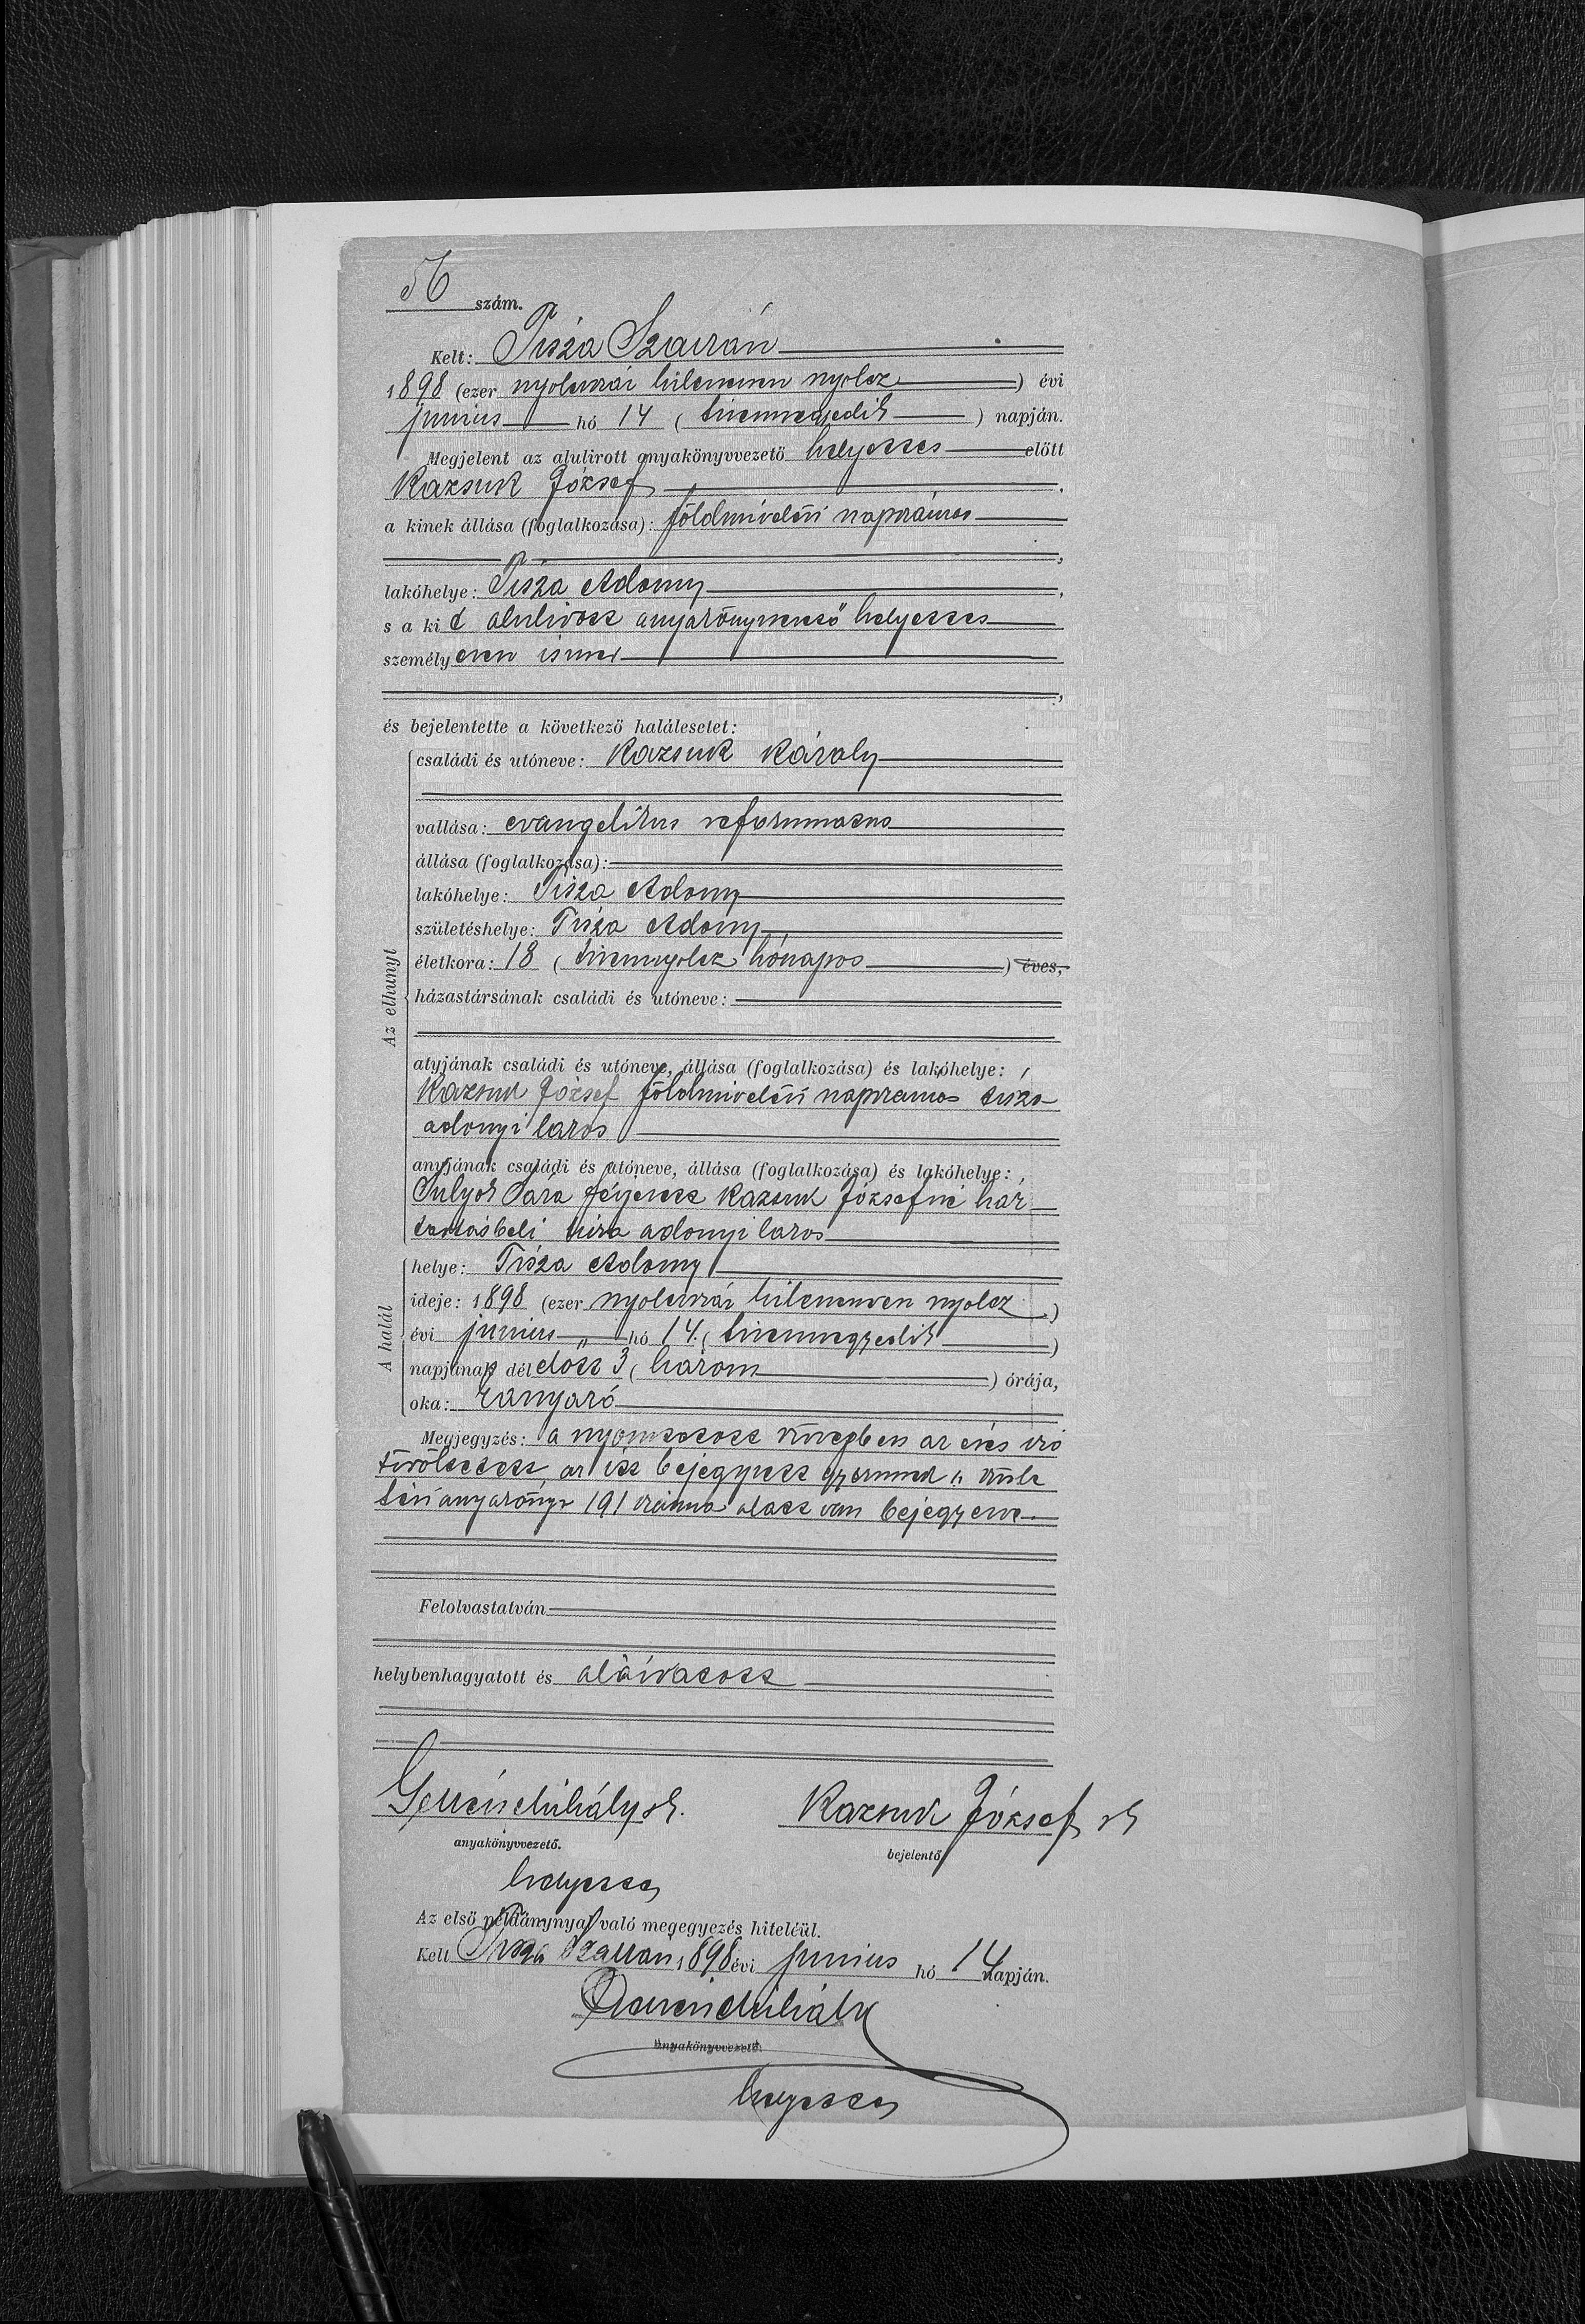 56 szám.
Kelt: Tisza Szalván
1898 (ezer nyolczszáz kilenczven nyolcz) évi
junius hó 14 (tizennegyedik) napján.
Megjelent az alulirott anyakönyvvezető helyettes előtt
Kazsuk József
a kinek állása (foglalkozása): földmivelési napszámos
,
lakóhelye: Tisza Adony,
s a kit alulirott anyakönyvvezető helyettes
személyesen ismer
,
és bejelentette a következő halálesetet:
Az elhunyt
családi és utóneve: Kazsuk Károly
vallása: evangelikus reformatus
állása (foglalkozása):
lakóhelye: Tisza Adony
születéshelye: Tisza Adony
életkora: 18 (tizennyolcz hónapos) éves,
házastársának családi és utóneve:
atyjának családi és utóneve, állása (foglalkozása) és lakóhelye:
Kazsuk József földmivelési napszamos tisza
adonyi lakos
anyjának családi és utóneve, állása (foglalkozása) és lakóhelye:
Sulyok Sára férjezett Kazsuk Józsefné ház
tartásbeli tisza adonyi lakos
A halál
helye: Tisza Adony
ideje: 1898 (ezer nyolczszáz kilenczven nyolcz)
évi junius hó 14. (tizennegyedik)
napjának délelőtt 3 (három) órája,
oka: kanyaró
Megjegyzés: a nyomtatott szövegben az éves szó
töröltetett az itt bejegyzett gyermek a szüle
tési anyakönyv 191 száma alatt van bejegyezve
Felolvastatván
helybenhagyatott és aláiratott
Mihály sk.
anyakönyvvezető.
helyettes
Kazsuk József sk
bejelentő
Az első példánynyal való megegyezés hiteléül.
Kelt Tisza Szalván 1898 évi junius hó 14 napján.
Mihály
anyakönyvvezető.
helyettes